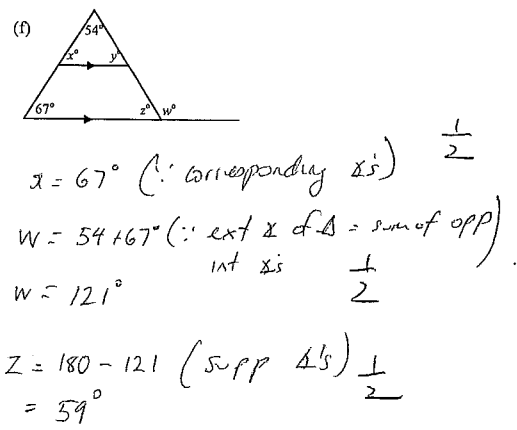 (f)
54°
x° y°
67° z° w°
x = 67° (∵ corresponding ∡'s) 1/2
W = 54 + 67° (∵ ext ∡ of Δ = sum of opp
int ∡'s) 1/2
W = 121°
Z = 180 - 121 (supp ∡'s) 1/2
= 59°